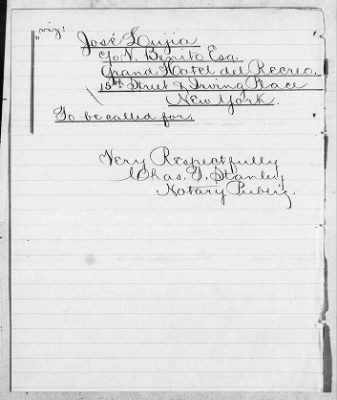 "viz:
José Lujia
c/o N. Benito Esq.
Grand Hotel del Recreo.
15th Street & Irving Place
New York.
To be called for.
Very Respectfully
Chas. F. Stanley,
Notary Public,